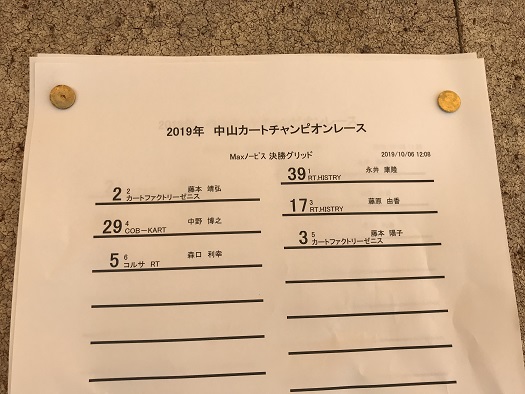 2019年 中山カートチャンピオンレース
Maxノービス 決勝グリッド
2019/10/06 12:08
39 1 永井 康隆
RT.HISTRY
2 2 藤本 靖弘
カートファクトリーゼニス
17 3 藤原 由香
RT.HISTRY
29 4 中野 博之
COB-KART
3 5 藤本 陽子
カートファクトリーゼニス
5 6 森口 利幸
コルサ RT